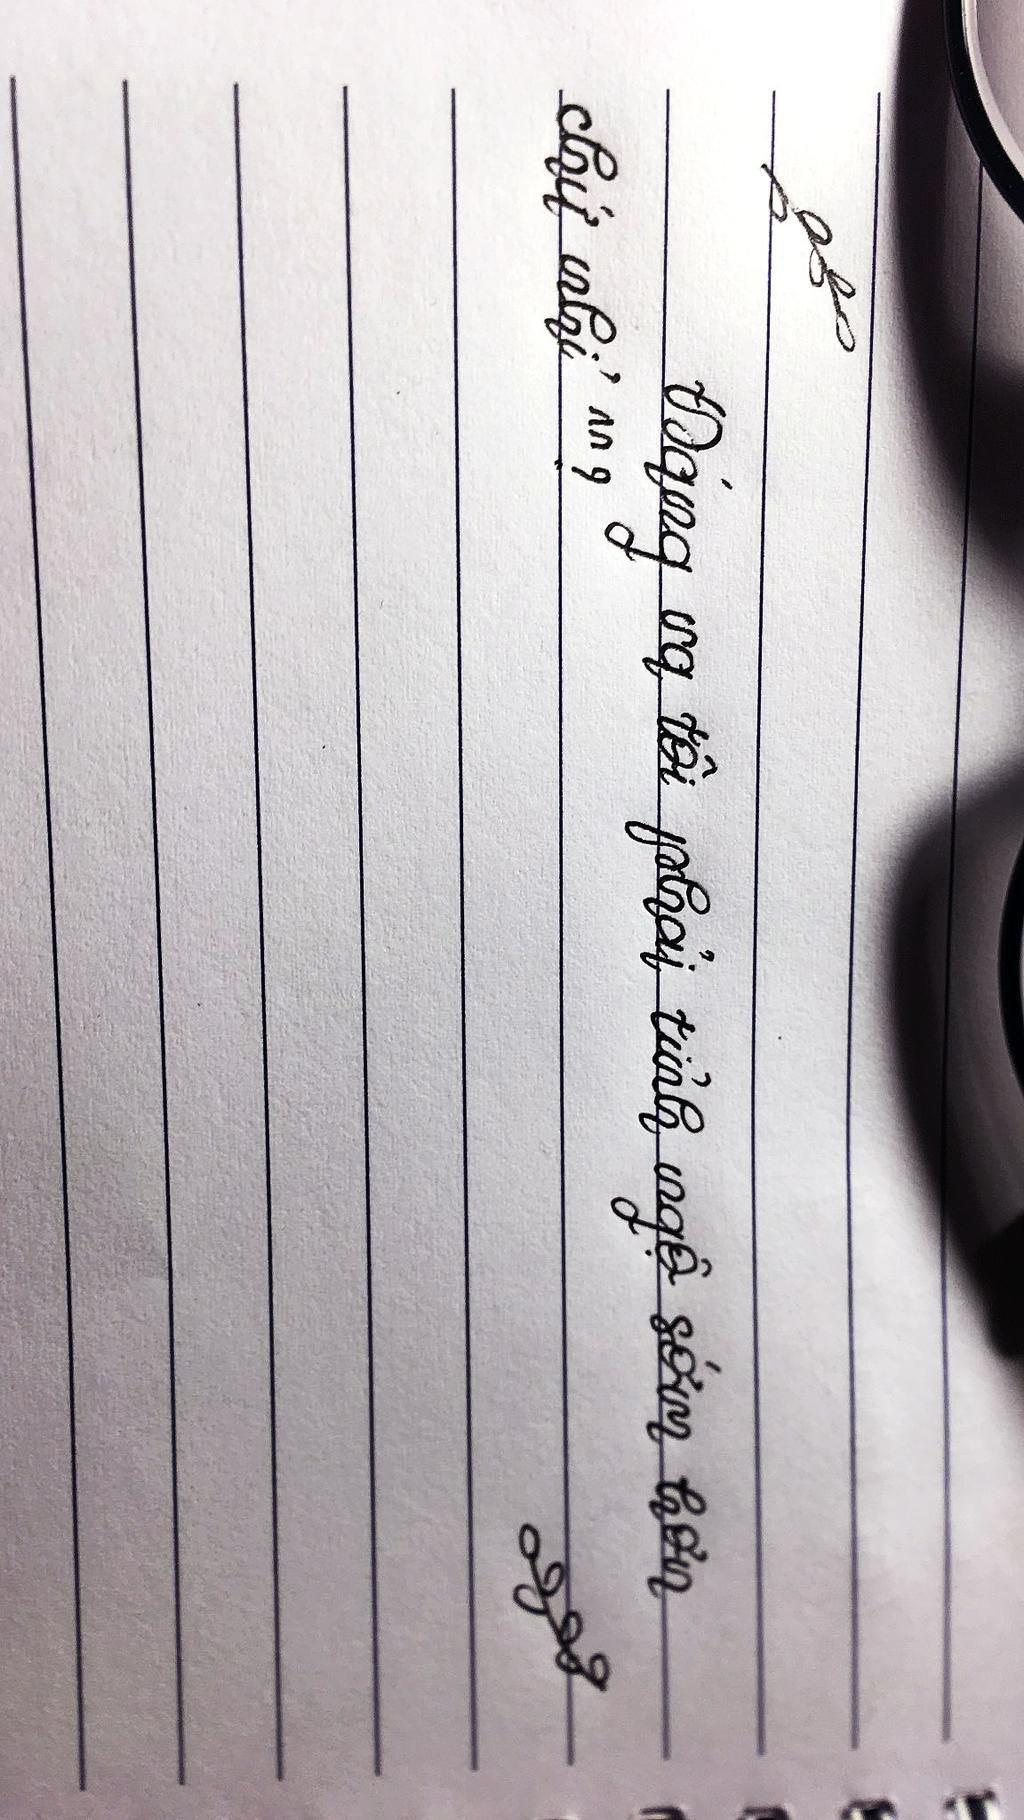 Đáng ra tôi phải tỉnh ngộ sớm hơn
chứ nhỉ ^^ ?